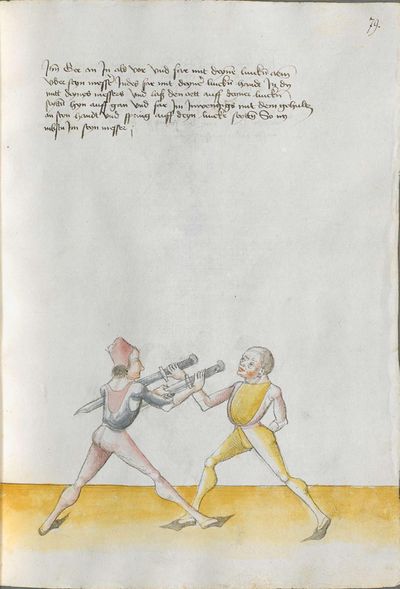 79.
Itm Gee an In als vor vnd far mit deyne lincken arm
vber seyn messer Indes far mit deyner lincken handt In dy
mitt deyns messers vnd laß den ort auff deiner lincken
seyten hyn auß gan vnd far Im Inwendigs mit dem gehultz
an seyn handt vnd spring auff deyn lincke seyten So ny
mbstu Im seyn messer